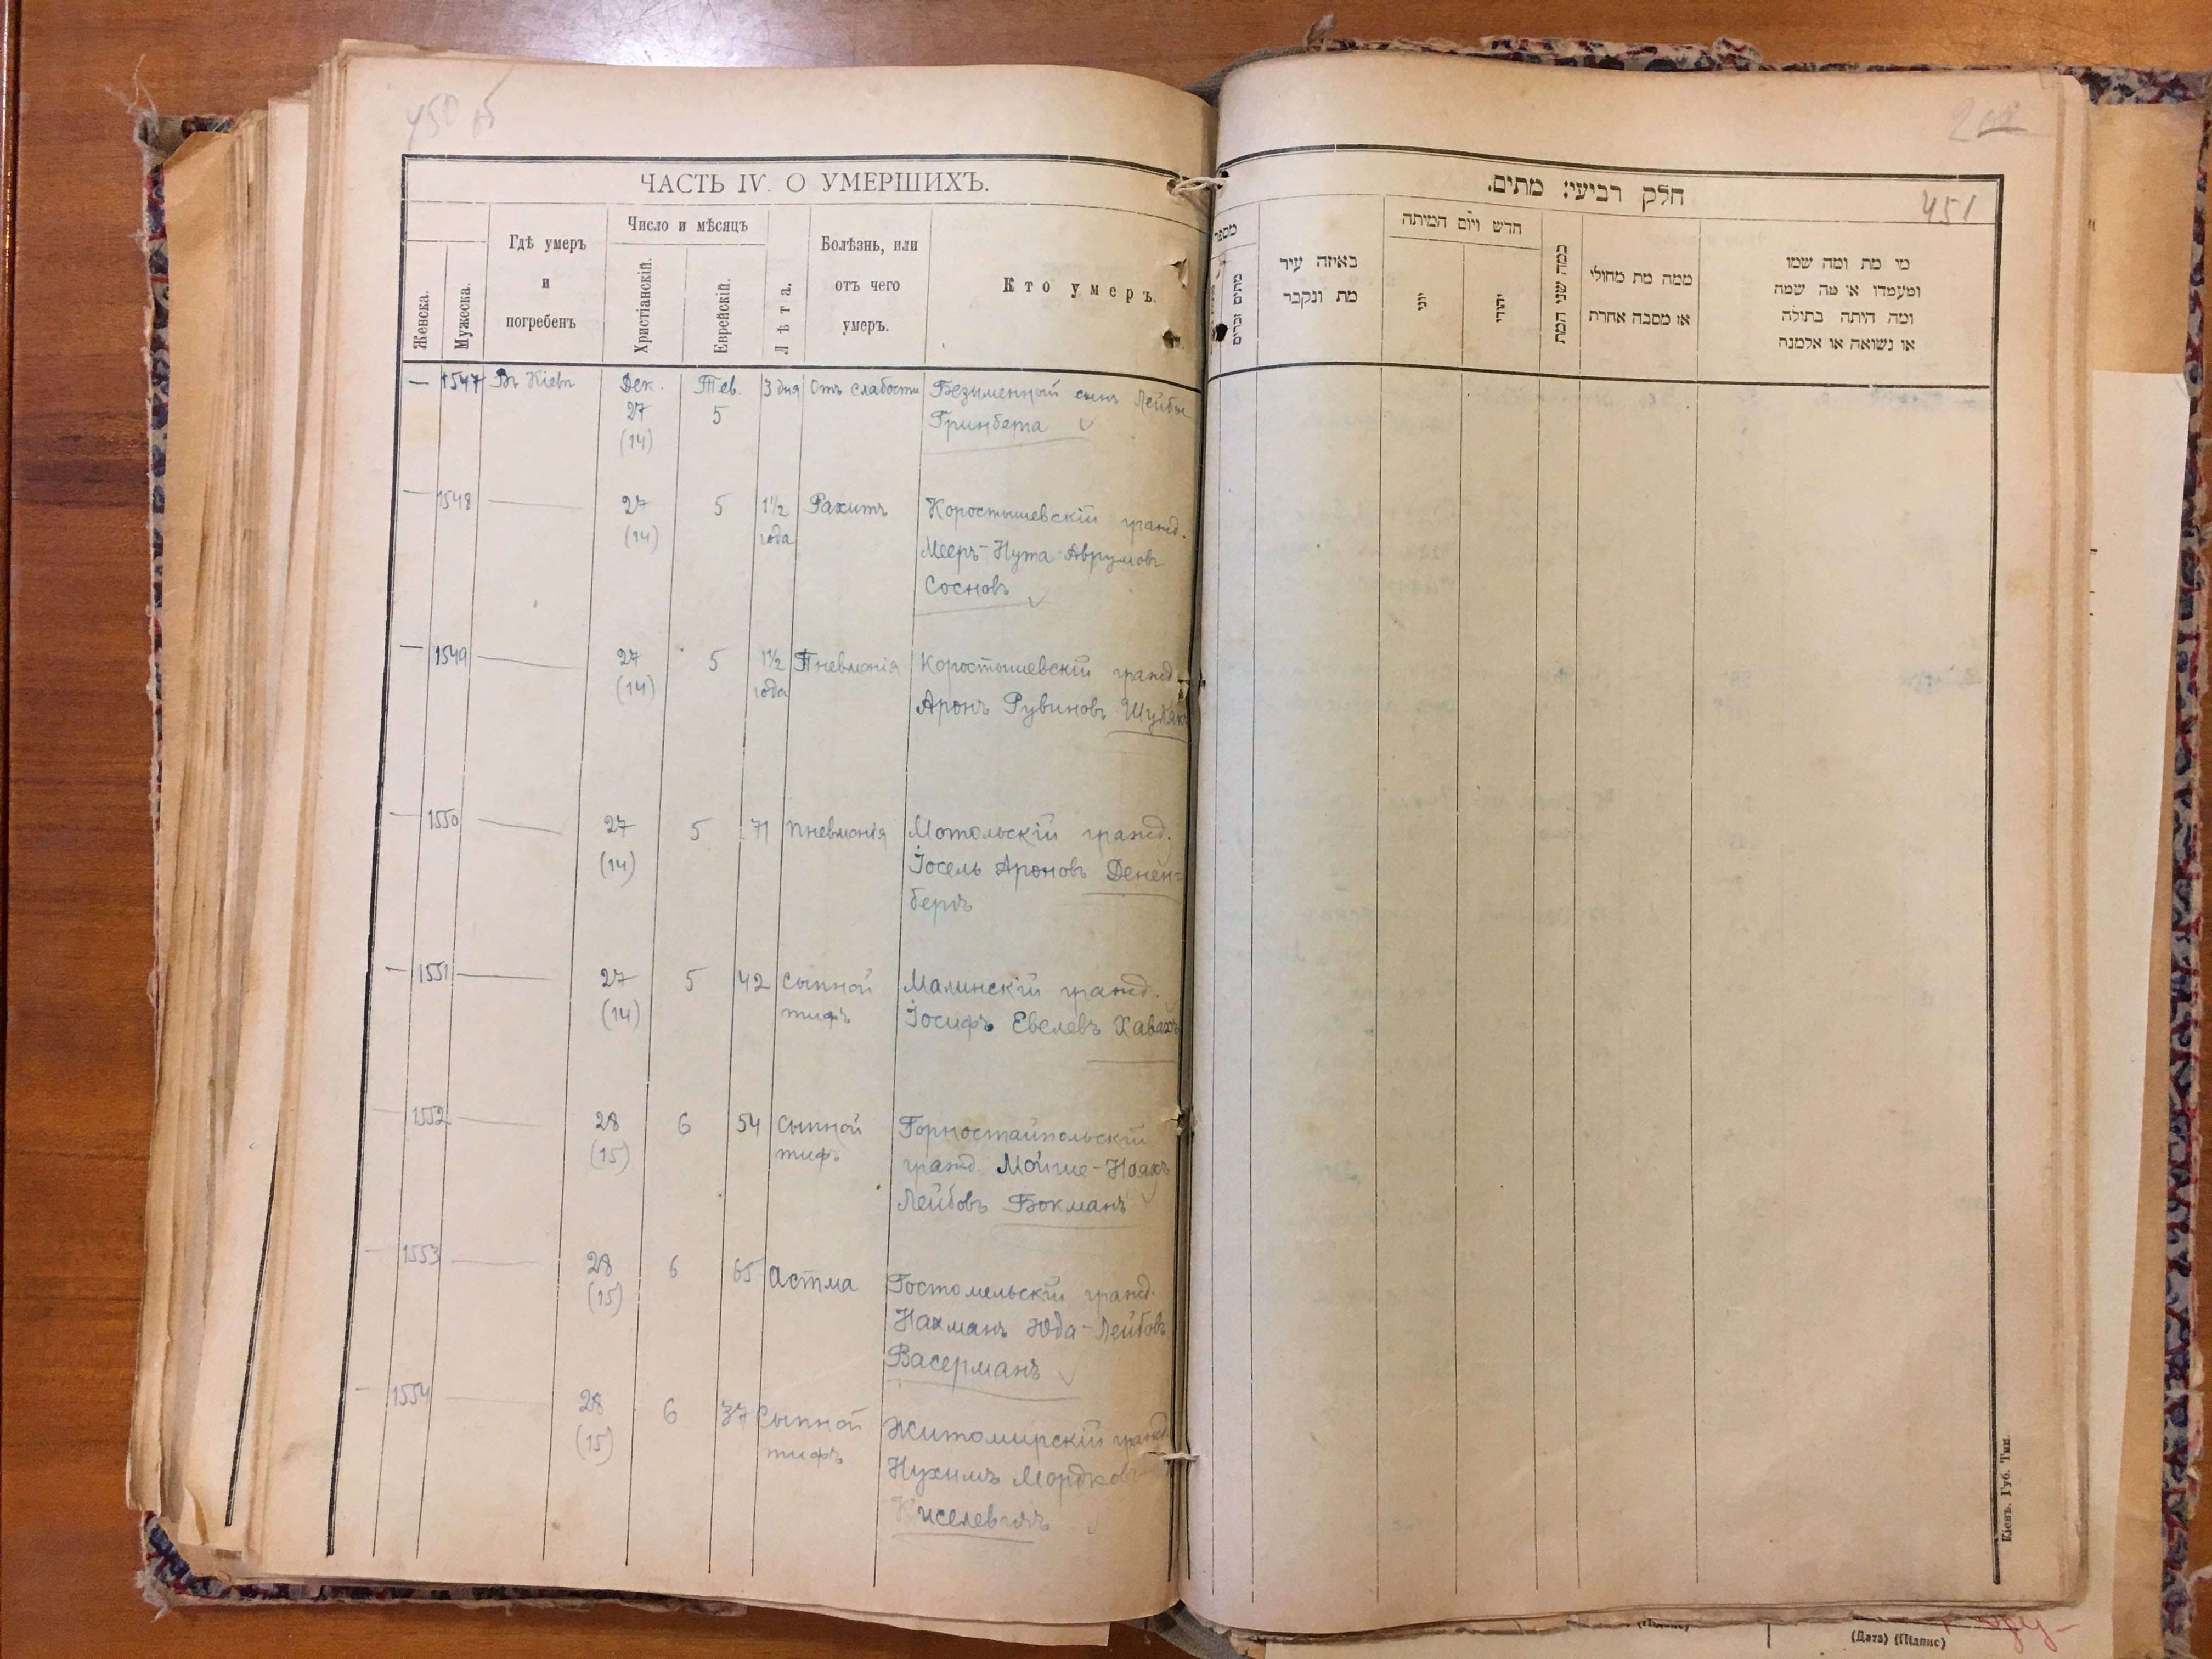 450 об
ЧАСТЬ IV. О УМЕРШИХЪ.
Женска.
Мужеска.
Гдѣ умеръ
и
погребенъ
Число и мѣсяцъ
Христіанскій.
Еврейскій.
Лѣта.
Болѣзнь, или
отъ чего
умеръ.
Кто умеръ.
— 1547 Въ Кіевѣ Дек. Тев. 3 дня Отъ слабости Безименный сынъ Лейбы
27 5 Гринберга
(14)
— 1548 — 27 5 1½ Рахитъ Коростышевскій гражд.
(14) года Мееръ-Нута Аврумовъ
Сосновъ
— 1549 — 27 5 1½ Пневмонія Коростышевскій гражд.
(14) года Аронъ Рувиновъ Шулякъ
— 1550 — 27 5 71 Пневмонія Мотольскій гражд.
(14) Іосель Ароновъ Денен=
бергъ
— 1551 — 27 5 42 Сыпной Малинскій гражд.
(14) тифъ Іосифъ Евелевъ Хавахъ
— 1552 — 28 6 54 Сыпной Горностайпольскій
(15) тифъ гражд. Мойше-Ноахъ
Лейбовъ Бокманъ
— 1553 — 28 6 65 Астма Гостомельскій гражд.
(15) Нахманъ Юда-Лейбовъ
Васерманъ
— 1554 — 28 6 37 Сыпной Житомирскій гражд.
(15) тифъ Нухимъ Мордковъ
Киселевичъ
451
חלק רביעי: מתים.
מספר
מתים זכרים
באיזה עיר
מת ונקבר
חדש ויום המיתה
יוני
יהודי
כמה שני המת
ממה מת מחולי
או מסבה אחרת
מי מת ומה שמו
ומעמדו או מה שמה
ומה היתה בתולה
או נשואה או אלמנה
Кіевъ. Губ. Тип.
(Дата) (Підпис)